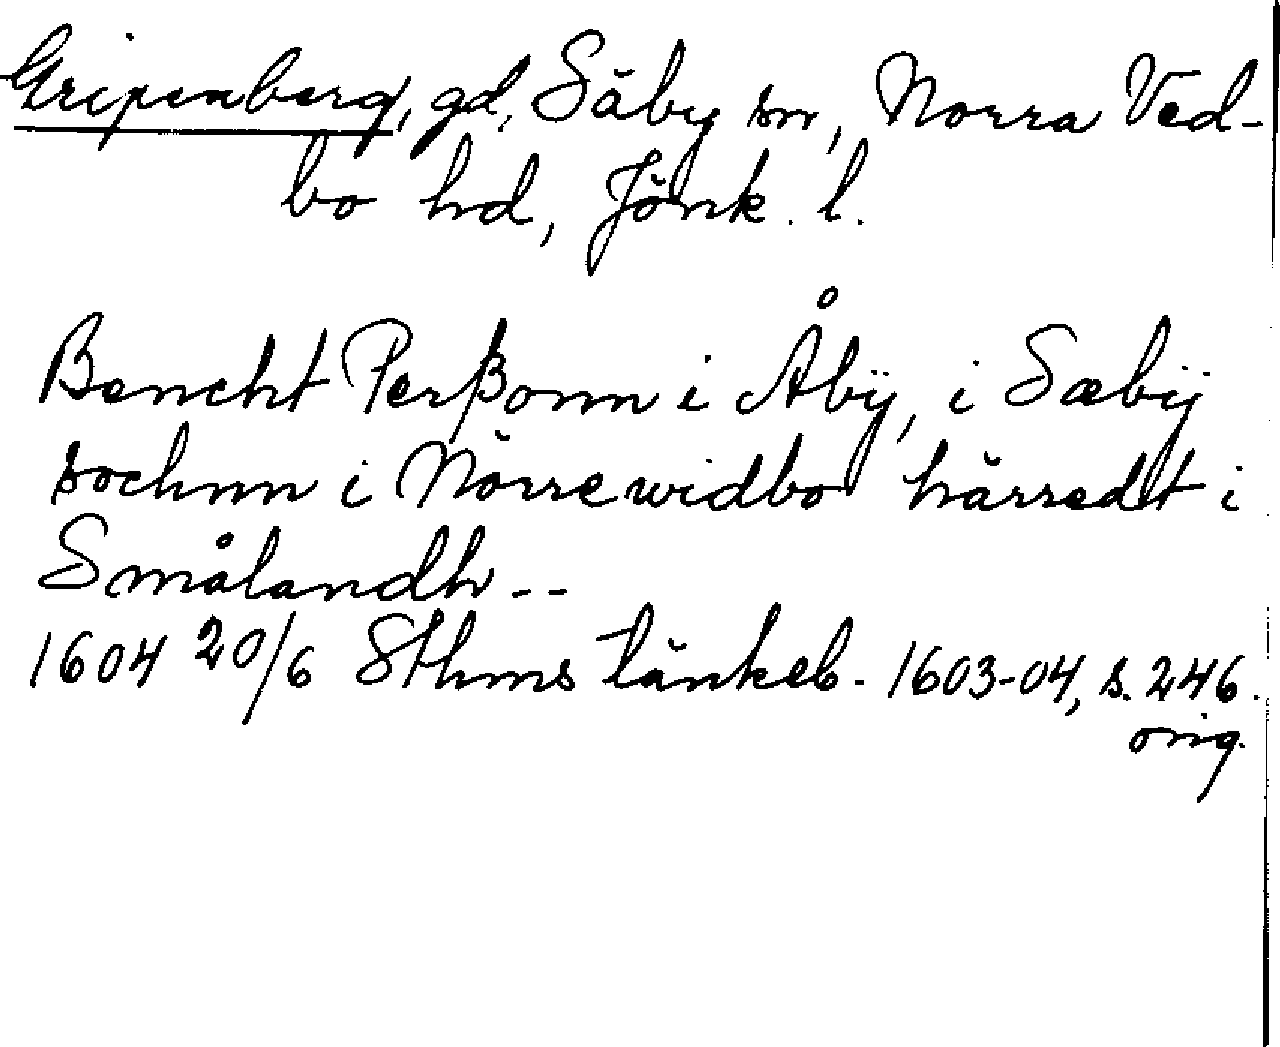 Gripenberg, gd, Säby sn, Norra Ved-
bo hd, Jönk. l.
Bencht Perßonn i Åbÿ, i Sæbÿ
sochnn i Nörrewidbo härredt i
Smålandh --
1604 20/6 Sthms tänkeb. 1603-04, s. 246.
orig.